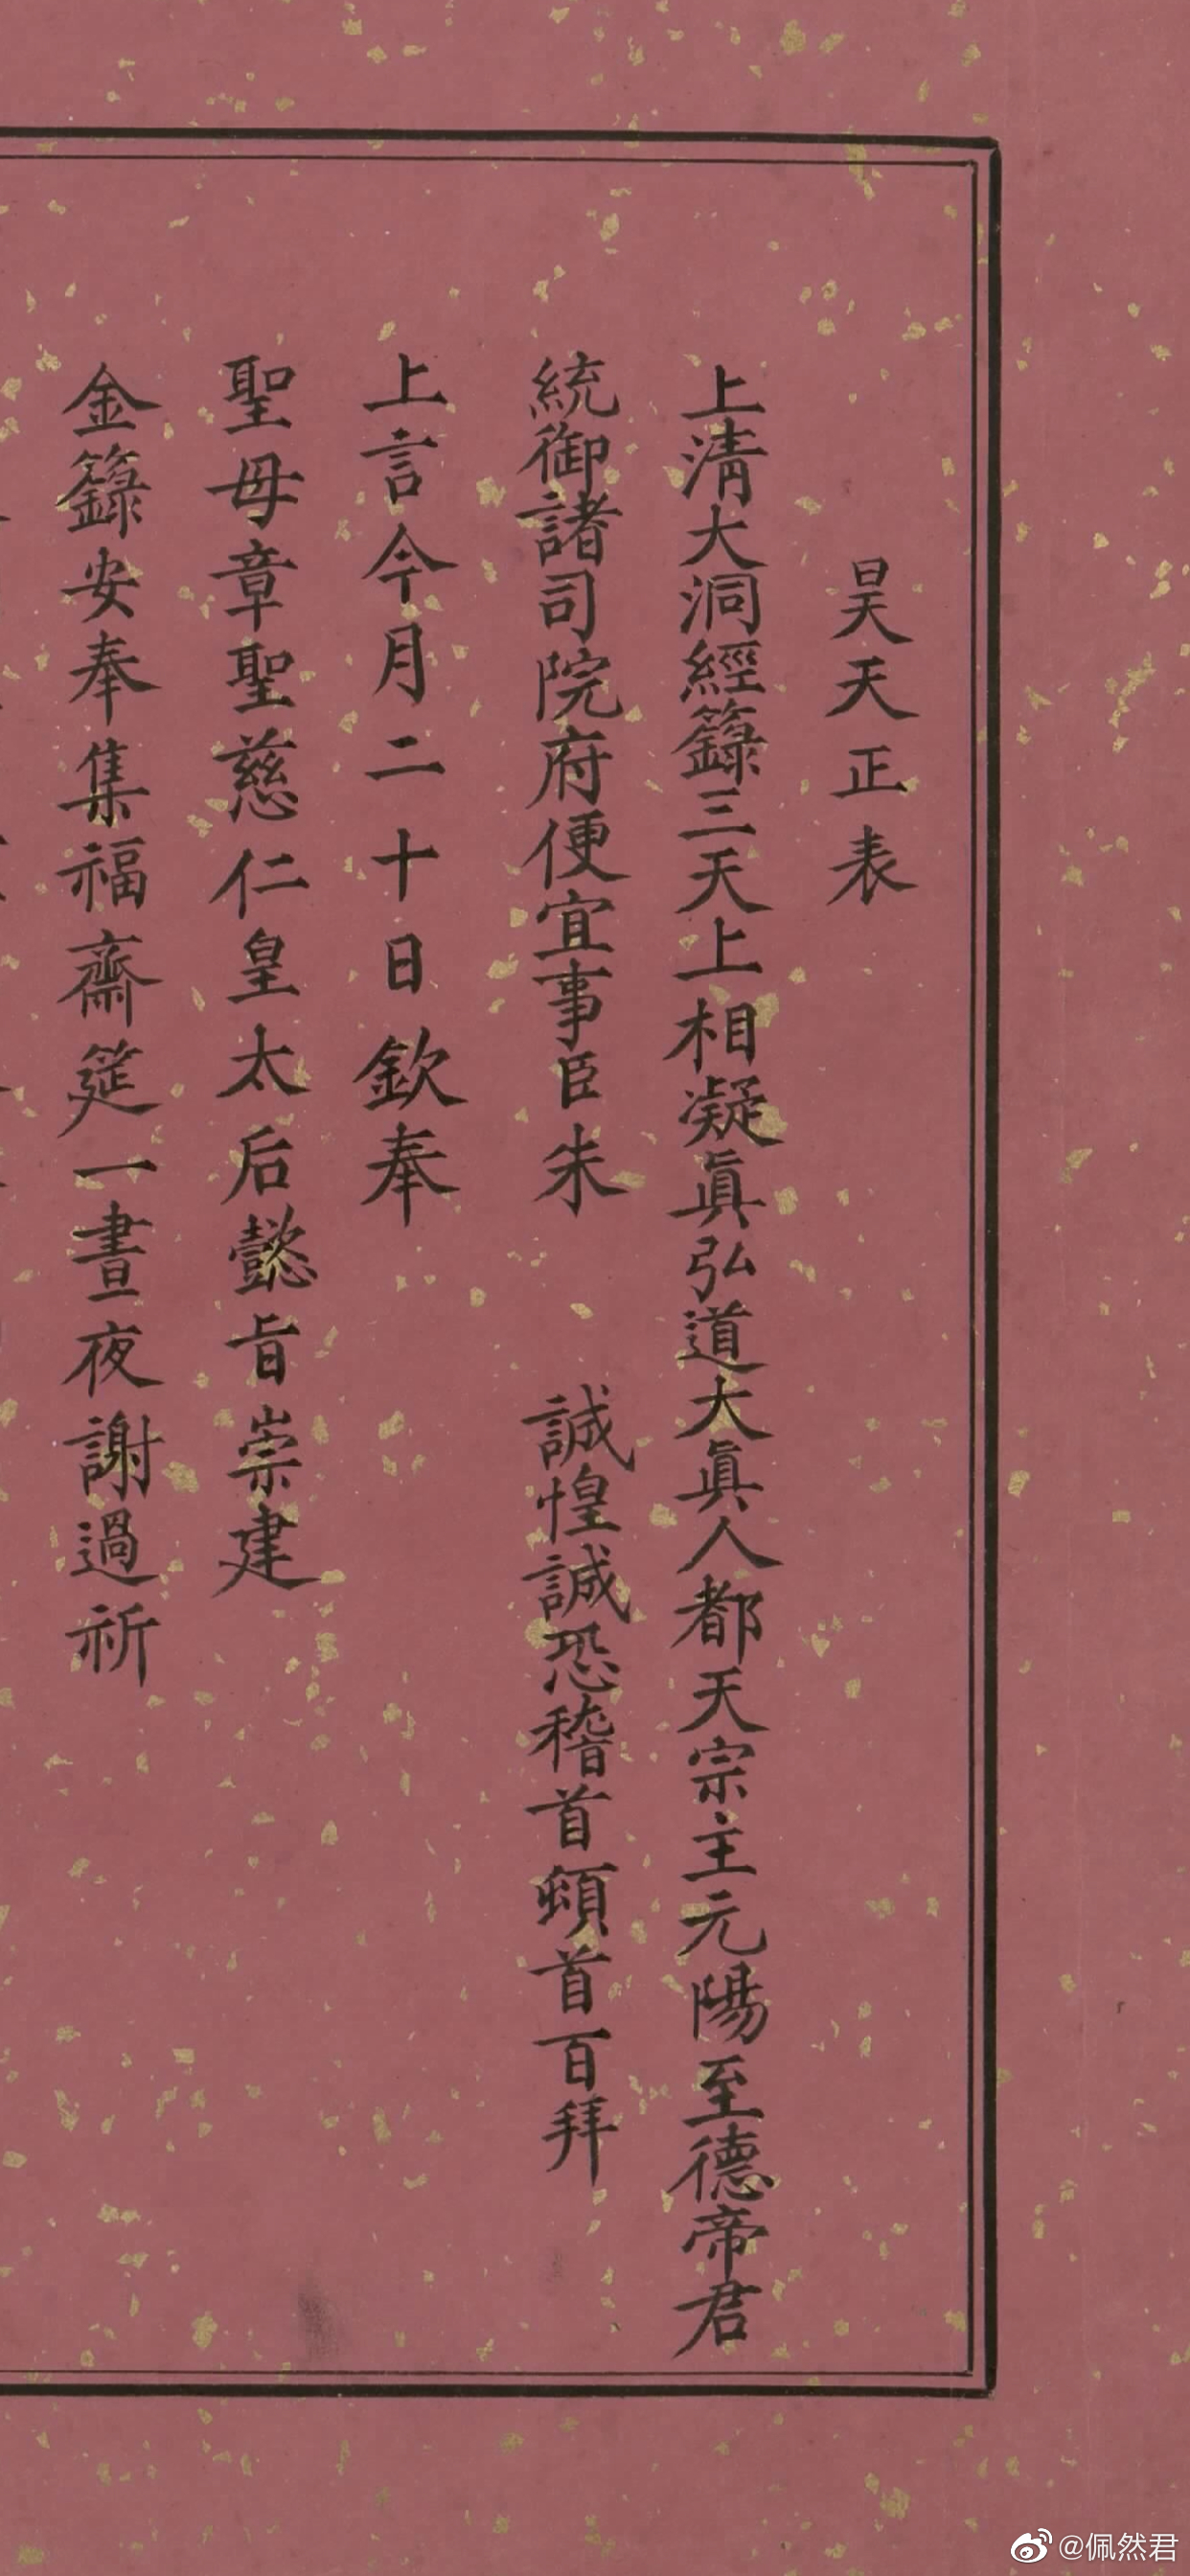 昊天正表
上清大洞經籙三天上相凝眞弘道大眞人都天宗主元陽至德帝君
統御諸司院府便宜事臣朱　誠惶誠恐稽首頓首百拜
上言今月二十日欽奉
聖母章聖慈仁皇太后懿旨崇建
金籙安奉集福齋筵一晝夜謝過祈
@佩然君